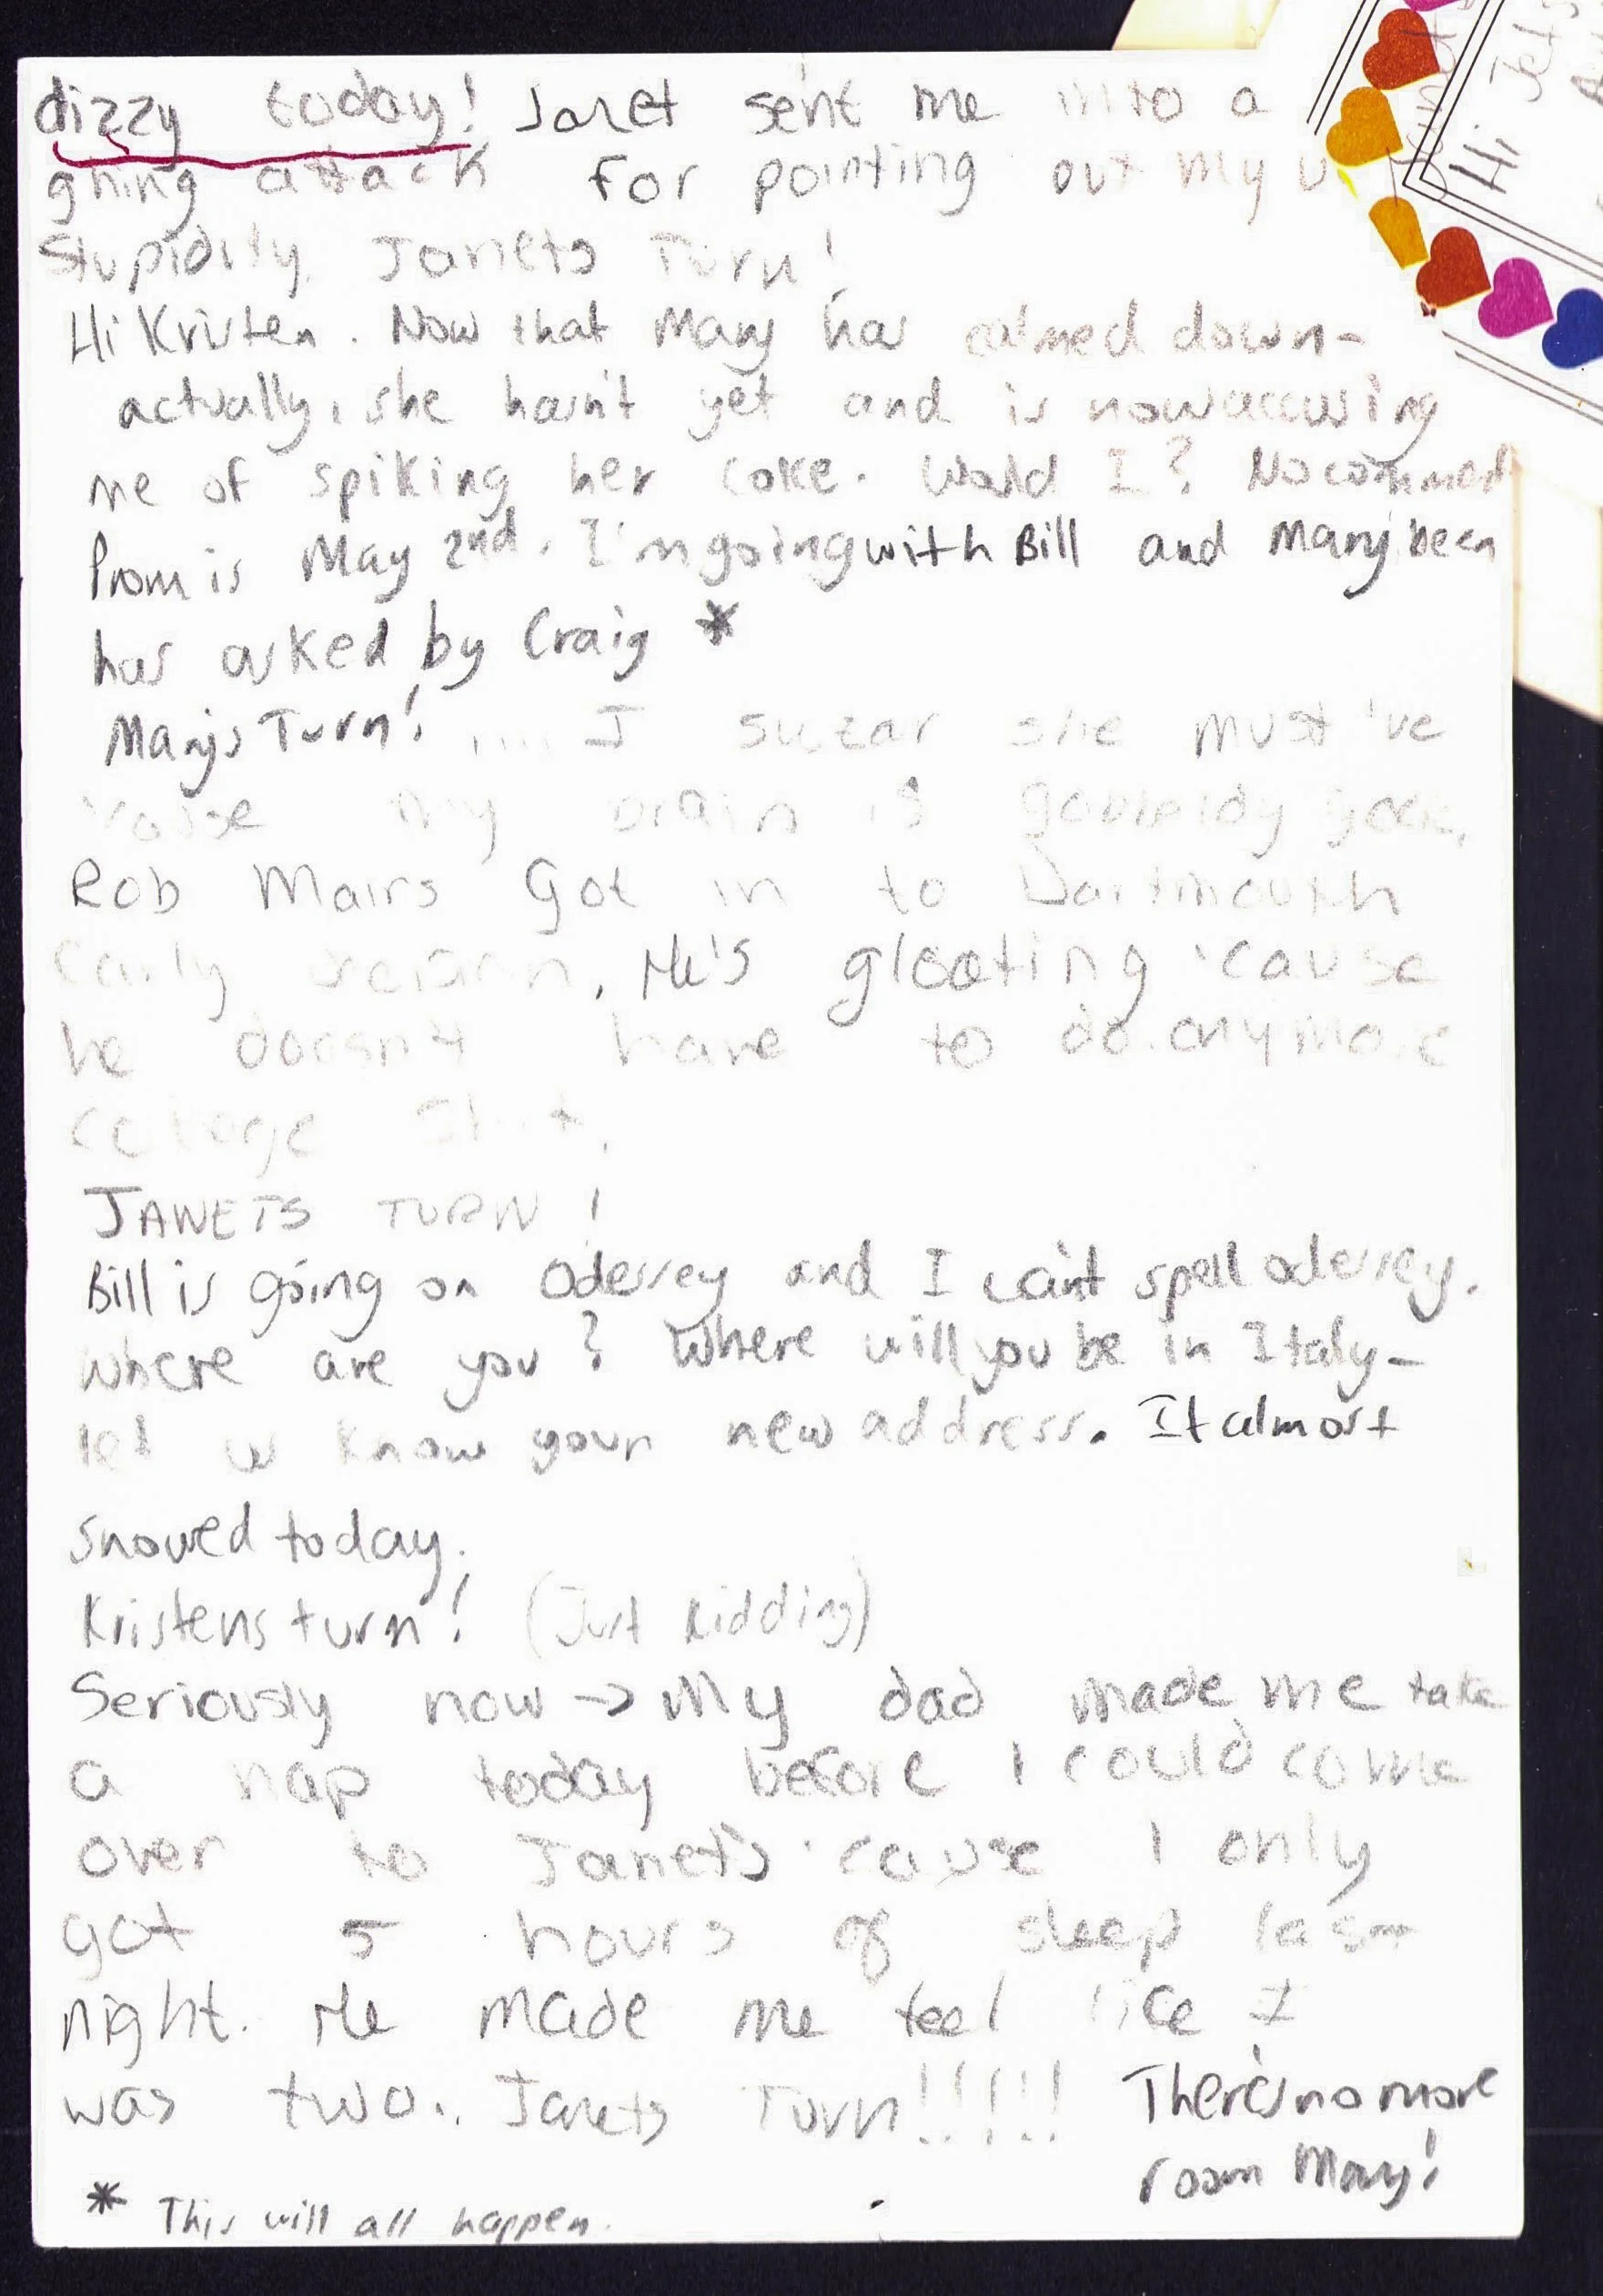 dizzy today! Janet sent me into a
ghing attack for pointing out my
Stupidity. Janets Turn!
Hi Kristen. Now that Mary has calmed down-
actually, she hasn't yet and is now accusing
me of spiking her coke. Would I? No comment
Prom is May 2nd. I'm going with Bill and Mary been
has asked by Craig *
Mary's Turn! .... I swear she must've
'cause my brain is gobbldy gook.
Rob Mairs Got in to Dartmouth
early decision, He's gloating 'cause
he doesn't have to do anymore
college shit.
JANETS TURN!
Bill is going on Oderrey and I can't spell oderrey.
Where are you? Where will you be in Italy-
let us know your new address. It almost
snowed today.
Kristens turn! (Just kidding)
Seriously now -> My dad made me take
a nap today before I could come
over to Janet's 'cause I only
got 5 hours of sleep last
night. He made me feel like I
was two.. Janets Turn!!!!! There's no more
room Mary!
* This will all happen.
Hi